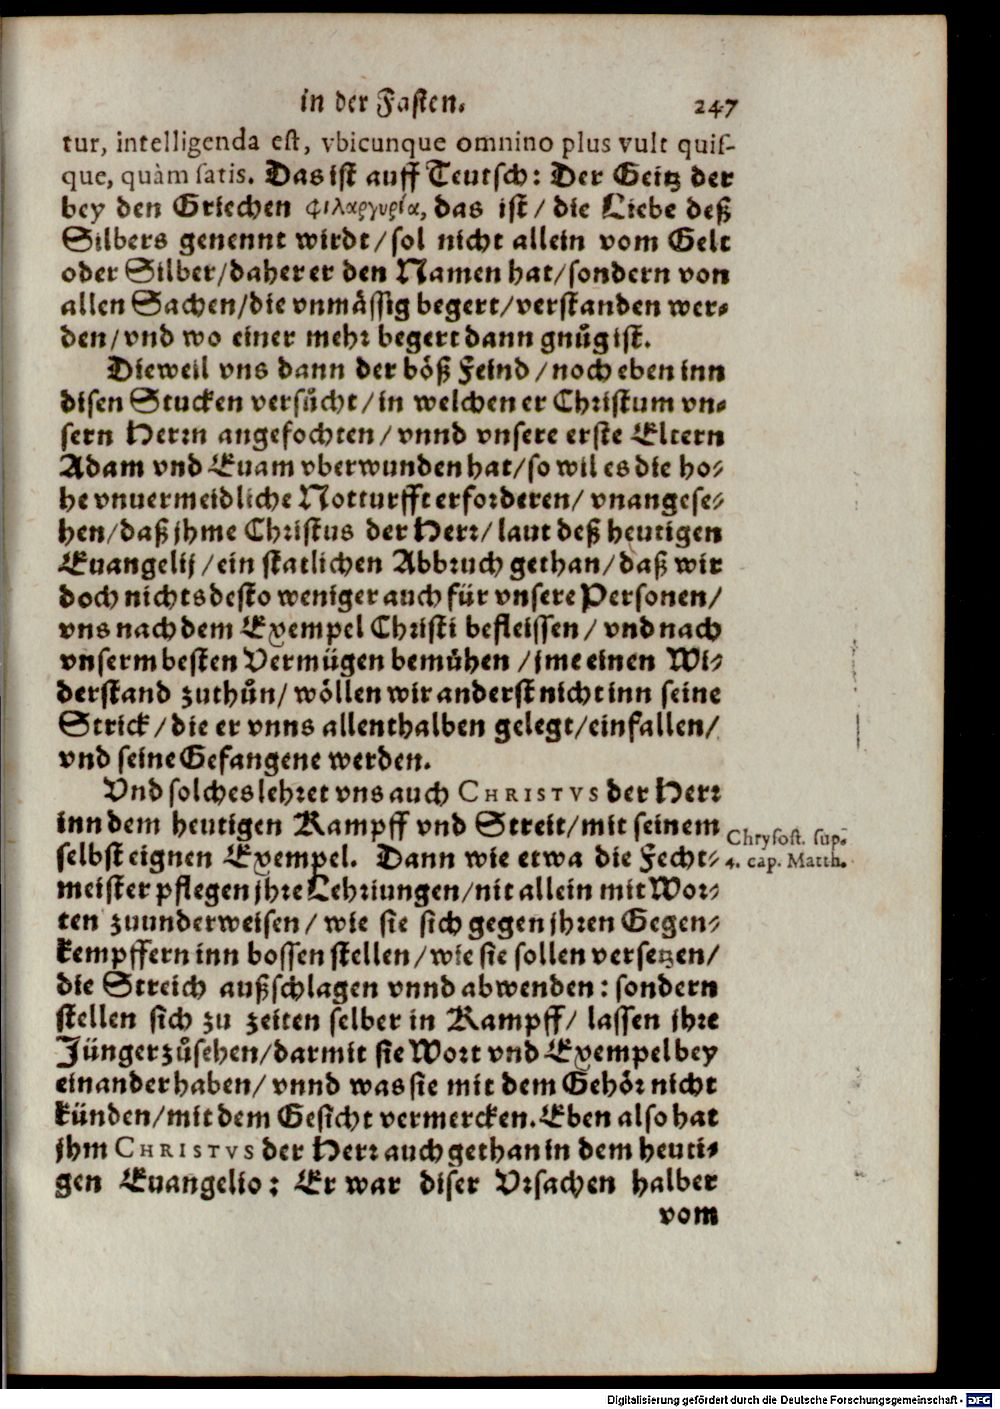 in der Fasten. 247
tur, intelligenda est, vbicunque omnino plus vult quis-
que, quàm satis. Das ist auff Teutsch: Der Geitz der
bey den Griechen φιλαργυρία, das ist/ die Liebe deß
Silbers genennt wirdt/ sol nicht allein vom Gelt
oder Silber/ daher er den Namen hat/ sondern von
allen Sachen/ die vnmässig begert/ verstanden wer-
den/ vnd wo einer mehr begert dann gnůg ist.
Dieweil vns dann der böß Feind/ noch eben inn
disen Stucken versůcht/ in welchen er Christum vn-
sern Herrn angefochten/ vnnd vnsere erste Eltern
Adam vnd Euam vberwunden hat/ so wil es die ho-
he vnuermeidliche Notturfft erforderen/ vnangese-
hen/ daß jhme Christus der Herr/ laut deß heutigen
Euangelij/ ein statlichen Abbruch gethan/ daß wir
doch nichts desto weniger auch für vnsere Personen/
vns nach dem Exempel Christi befleissen/ vnd nach
vnserm besten Vermügen bemůhen/ jme einen Wi-
derstand zuthůn/ wöllen wir anderst nicht inn seine
Strick/ die er vnns allenthalben gelegt/ einfallen/
vnd seine Gefangene werden.
Vnd solches lehret vns auch CHRISTVS der Herr
inn dem heutigen Kampff vnd Streit/ mit seinem
selbst eignen Exempel. Dann wie etwa die Fecht-
meister pflegen jhre Lehriungen/ nit allein mit Wor-
ten zuunderweisen/ wie sie sich gegen jhren Gegen-
kempffern inn bossen stellen/ wie sie sollen versetzen/
die Streich außschlagen vnnd abwenden: sondern
stellen sich zu zeiten selber in Kampff/ lassen jhre
Jünger zůsehen/ darmit sie Wort vnd Exempel bey
einander haben/ vnnd was sie mit dem Gehör nicht
künden/ mit dem Gesicht vermercken. Eben also hat
jhm CHRISTVS der Herr auch gethan in dem heuti-
gen Euangelio: Er war diser Vrsachen halber
vom
Chrysost. sup.
4. cap. Matth.
Digitalisierung gefördert durch die Deutsche Forschungsgemeinschaft - DFG